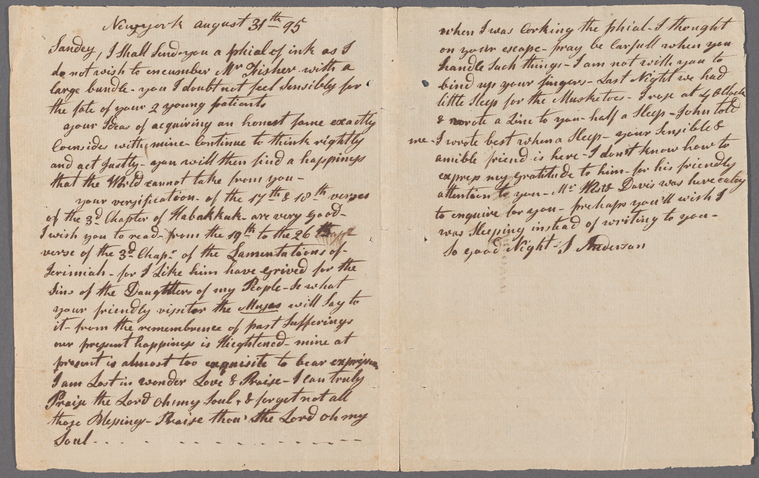 Newyork august 31th 95
Sandey I Shall Send you a phial of ink as I
do not wish to encumber Mr Fisher with a
large bundle - you I doubt not feel Sensibly for
the fate of your 2 young patients
your Ideas of acquiring an honest fame exactly
Coinsides with mine - Continue to think rightly
and act Justly - you will then find a happiness
that the World cannot take from you -
your versification of the 17th & 18th verses
of the 3d Chapter of Habakkuk are very Good -
I wish you to read - from the 19th to the 26th
verse of the 3d Chapr of the Lamentations of -
Jerimiah - for I Like him have grived for the
Sins of the Daughters of my People - Se what
your friendly visitor the Muses will Say to
it - from the remembrence of past Sufferings
our present happiness is Heightened - mine at
present is almost too exquisite to bear expression
I am Lost in wonder Love & Praise - I Can truly
Praise the Lord Oh my Soul, & forget not all
those Blesings - Praise thou the Lord oh my
Soul - - - -
when I was Corking the phial - I thought
on your escape - pray be Carfull when you
handle Such things - I am not with you to
bind up your fingers - Last Night we had
little Sleep for the Musketoes - I rose at 4 oClock
& wrote a Line to you - half a Sleep - John told
me - I wrote best when a Sleep - your Sensible &
amible friend is here - I dont know how to
express my gratitude to him - for his friendly
attention to you - Mr Davis was here
to inquire for you - prehaps you'll wish I
was Sleeping instead of writing to you -
So Good Night - S Anderson